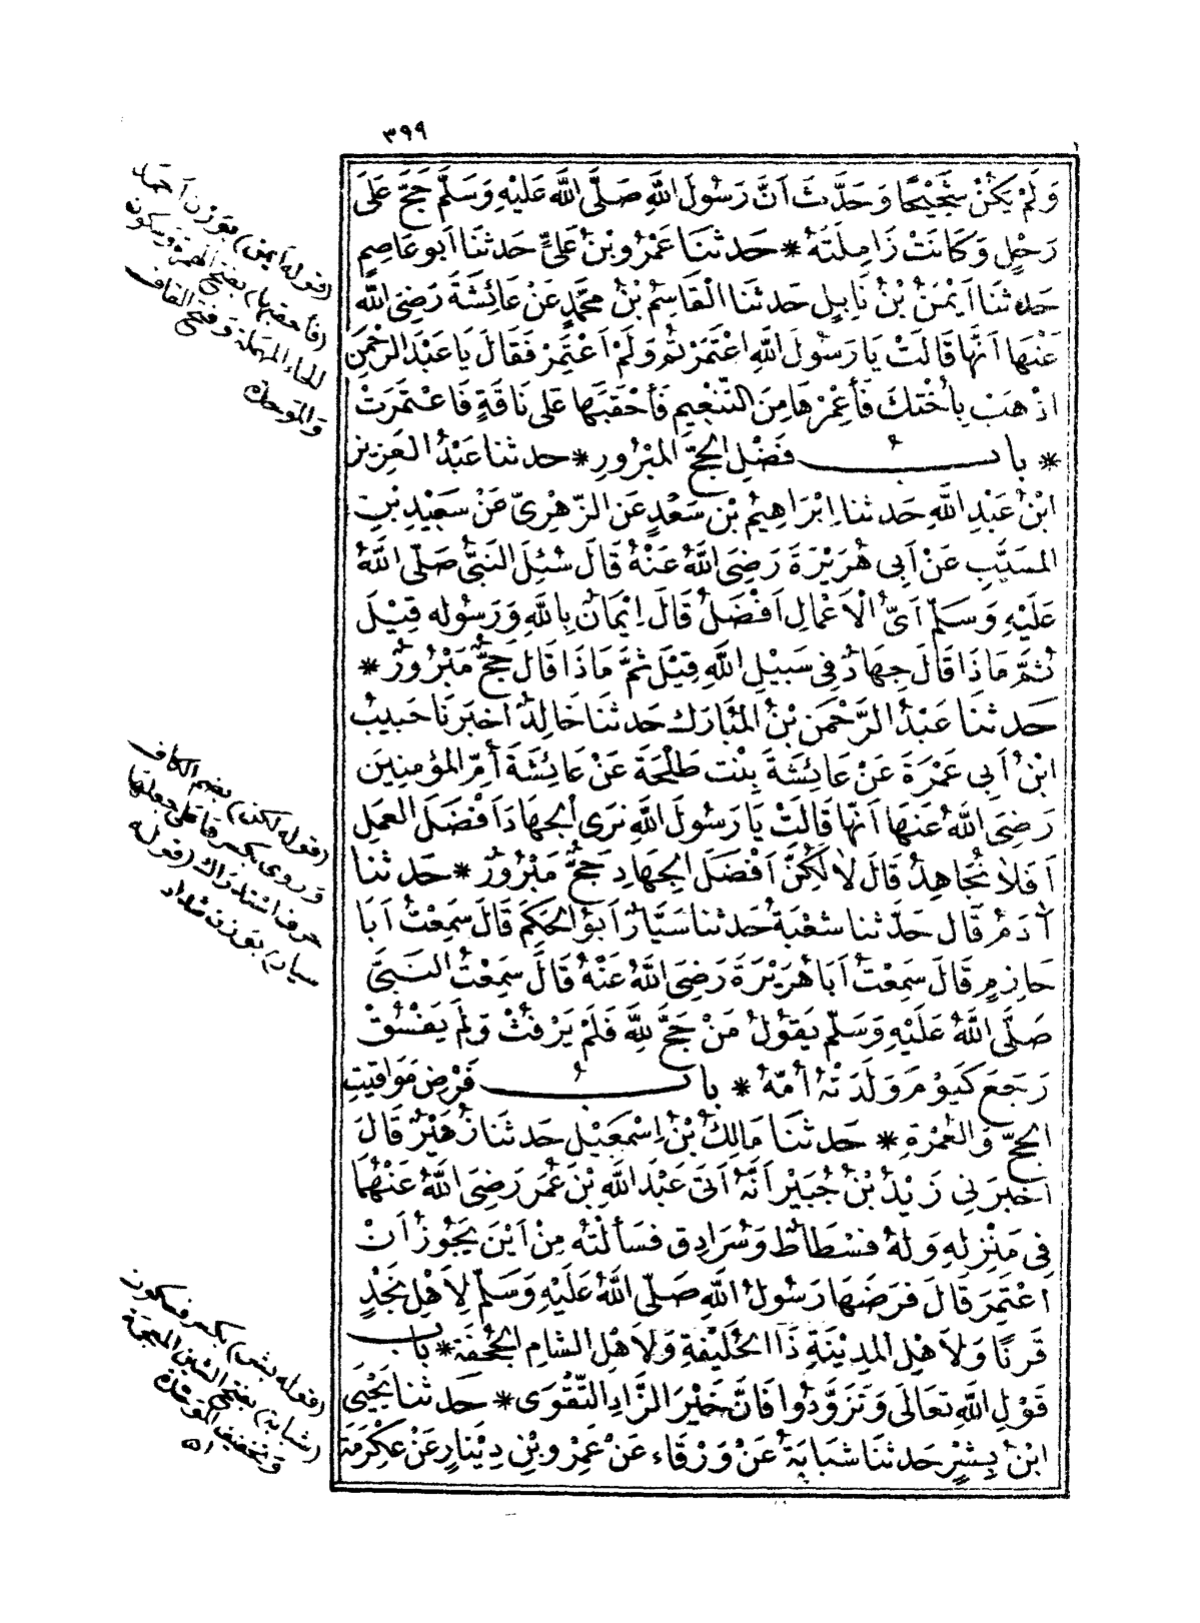 ٣٩٩
وَلَمْ يَكُنْ شَحِيْحًا وَحَدَّثَ اَنَّ رَسُولَ اللَّهِ صَلَّى اللَّهُ عَلَيْهِ وَسَلَّمَ حَجَّ عَلَى
رَحْلٍ وَكَانَتْ زَامِلَتَهُ * حَدثنَا عَمْرُو بْنُ عَلِىٍّ حَدثنَا اَبو عَاصِمٍ
حَدثنَا اَيْمَنُ بْنُ نَابِلٍ حَدثنَا الْقَاسِمُ بْنُ مُحَمَّدٍ عَنْ عَائِشَةَ رَضِىَ اللَّه
عَنْهَا اَنَّهَا قَالَتْ يَا رَسُولَ اللَّهِ اعْتَمَرْتُمْ وَلَمْ اَعْتَمِرْ فَقَالَ يَا عَبْدَ الرَّحْمٰنِ
اذْهَبْ بِأُخْتِكَ فَأَعْمِرْهَا مِنَ التَّنْعِيمِ فَأَحْقَبَهَا عَلَى نَاقَةٍ فَاعْتَمَرَتْ
* بابُ فَضْلِ الحَجِّ المَبْرُورِ * حدثنا عَبْدُ العَزِيزِ
ابْنُ عَبْدِ اللَّهِ حَدثنا اِبْرَاهِيمُ بْنُ سَعْدٍ عَنِ الزُّهْرِىِّ عَنْ سَعِيْدِ بْنِ
المسَيَّبِ عَنْ اَبِى هُرَيْرَةَ رَضِىَ اللَّهُ عَنْهُ قَالَ سُئِلَ النَّبِىُّ صَلَّى اللَّهُ
عَلَيْهِ وَسَلَّمَ اَىُّ الْاَعْمَالِ اَفْضَلُ قَالَ اِيْمَانٌ بِاللَّهِ وَرَسُولِه قِيْلَ
ثُمَّ مَاذَا قَالَ جِهَادٌ فِى سَبِيْلِ اللَّهِ قِيْلَ ثُمَّ مَاذَا قَالَ حَجٌّ مَبْرُورٌ *
حَدثنَا عَبْدُ الرَّحْمَنِ بْنُ المُبَارَك حَدثنَا خَالِدٌ اَخبَرنَا حَبيبُ
ابْنُ اَبى عَمْرَةَ عَنْ عَائِشَةَ بِنْت طَلْحَةَ عَنْ عَائِشَةَ أُمِّ المُؤمِنِين
رَضِىَ اللَّهُ عَنهَا اَنَّها قَالَتْ يَا رَسُولَ اللَّهِ نَرَى الْجِهَادَ اَفْضَلَ العَمَلِ
اَفَلَا نُجَاهِدُ قَالَ لَا لَكُنَّ اَفْضَلَ الجِهَادِ حَجٌّ مَبْرُورٌ * حَدثنا
آدَمُ قَال حَدَّثنا شعْبَةُ حَدثنا سَيَّارٌ اَبُو الحَكَمِ قَالَ سَمِعْتُ اَبَا
حَازِمٍ قَالَ سَمِعْتُ اَبَا هُرَيْرَةَ رَضِىَ اللَّهُ عَنْهُ قَالَ سَمِعْتُ النَّبِىَّ
صَلَّى اللَّهُ عَلَيْهِ وَسَلَّم يَقُولُ مَنْ حَجَّ لِلَّهِ فَلَمْ يَرْفُثْ وَلَم يَفْسُقْ
رَجَعَ كَيَوْمَ وَلَدَتْهُ أُمّهُ * بابُ فَرْضِ مَوَاقيتِ
الحَجِّ وَالعُمْرَةِ * حَدثنَا مَالِكُ بْنُ اِسْمعِيْل حَدثنَا زُهَيْرٌ قَالَ
اَخبَرَنِى زَيْدُ بْنُ جُبَيْر اَنَّهُ اَتَى عَبْدَ اللَّهِ بْنَ عُمَرَ رَضِىَ اللَّهُ عَنْهُمَا
فِى مَنْزِلِهِ وَلَهُ فسْطَاطٌ وَسُرَادِق فَسَأَلْتُهُ مِنْ اَيْنَ يَجُوزُ اَنْ
اَعْتَمِرَ قَالَ فَرَضَهَا رَسُولُ اللَّهِ صَلَّى اللَّهُ عَلَيْهِ وَسَلَّمَ لِاَهْلِ نَجْدٍ
قَرنًا وَلِاَهْلِ المدِيْنَةِ ذَا الحُلَيْفَةِ وَلِاَهْلِ الشامِ الجُحْفَةَ * باب
قَوْلِ اللَّهِ تعَالَى وَتَزَوَّدُوا فَاِنَّ خَيْرَ الزَّادِ التَّقْوَى * حَدثنا يَحْيَى
ابْنُ بِشْرٍ حَدثنَا شبَابَةُ عَنْ وَرْقَاء عَنْ عَمْرِو بْنِ دِيْنَارٍ عَنْ عِكْرِمَةَ
(قوله اَيمن) بوَزن اَحمد
(فأحقبها) بفتح الهمزة وسكون
الحاء المهملة وَفتح القاف
وَالموحدة
(قوله لكن) بضم الكاف
وَروى بكسرها على جعلها
حرف استدراك (قوله
سيار) بوزن شداد
(قوله بشر) بكسر فسكون
(شبابة) بفتح الشين المعجمة
وَتخفيف الموَحدة
اه